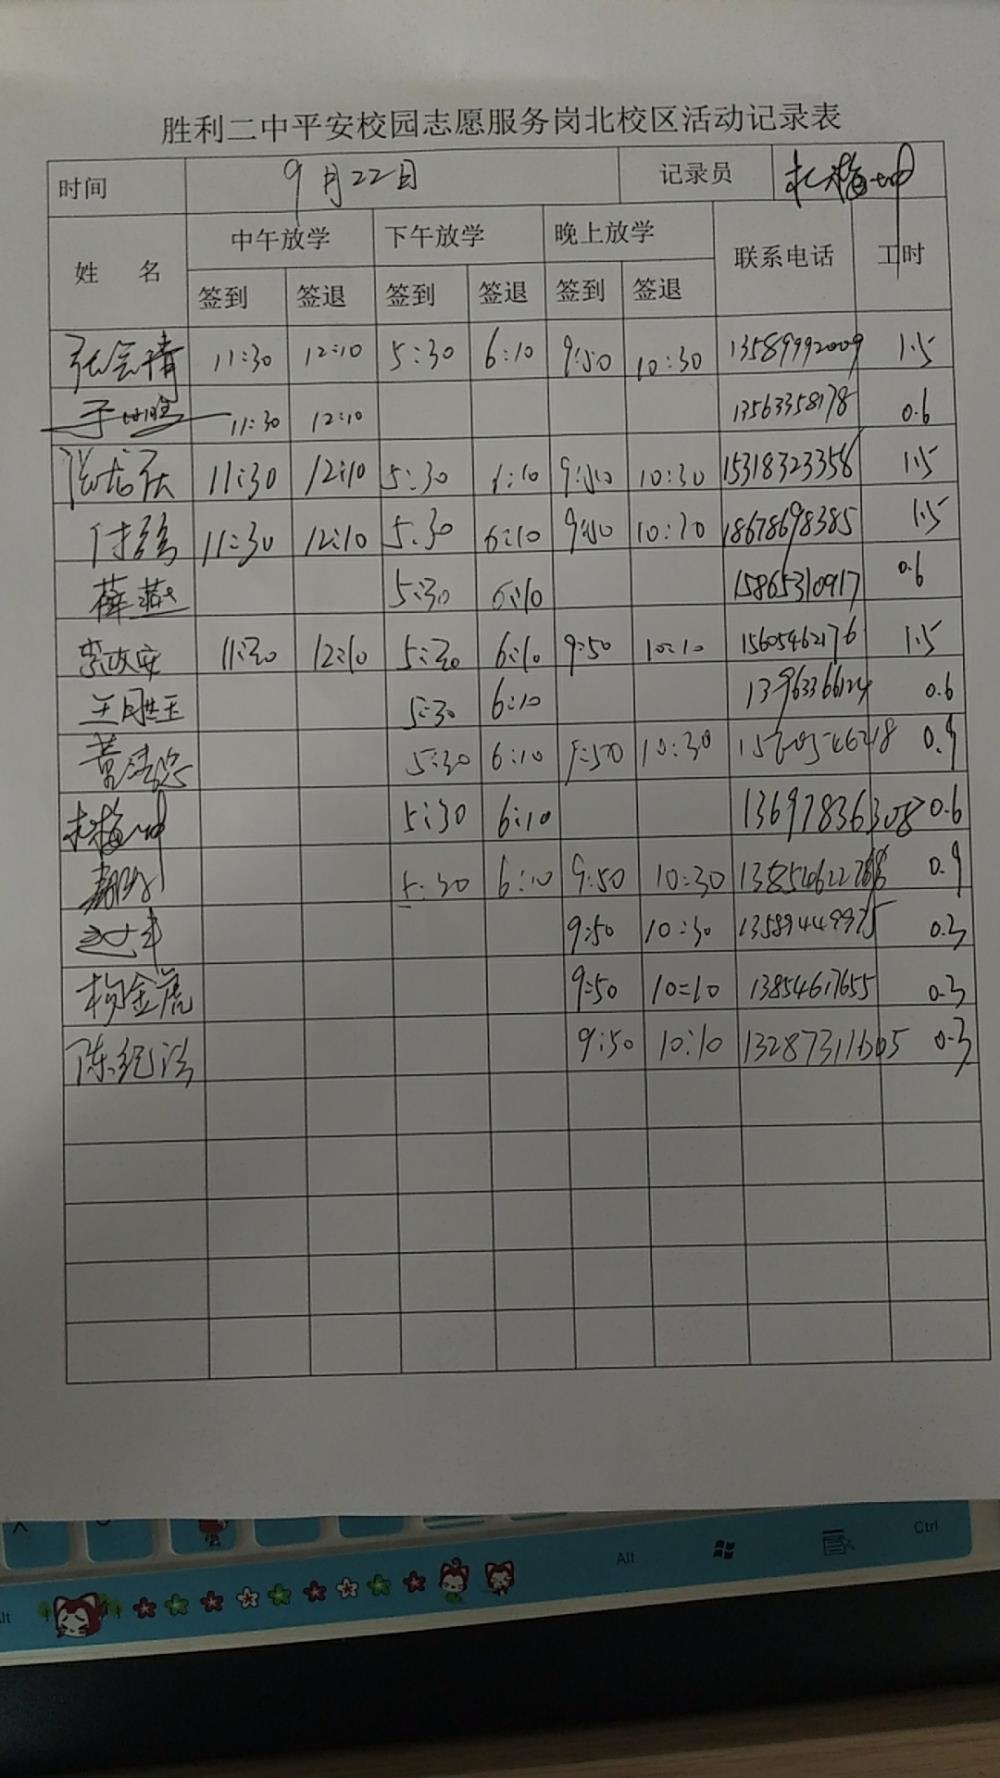 胜利二中平安校园志愿服务岗北校区活动记录表
时间 9月22日 记录员 杜梅坤
姓 名 中午放学 下午放学 晚上放学 联系电话 工时
签到 签退 签到 签退 签到 签退
张会清 11:30 12:10 5:30 6:10 9:50 10:30 13589992009 1.5
11:30 12:10 13563358178 0.6
11:30 12:10 5:30 6:10 9:50 10:30 15318323358 1.5
付强 11:30 12:10 5:30 6:10 9:50 10:30 18678698385 1.5
薛燕 5:30 6:10 15865310917 0.6
李政安 11:30 12:10 5:30 6:10 9:50 10:10 15605462176 1.5
王胜玉 5:30 6:10 0.6
5:30 6:10 9:50 10:30 1560546218 0.9
杜梅坤 5:30 6:10 13697836308 0.6
5:30 6:10 9:50 10:30 0.9
9:50 10:30 13589449975 0.3
杨金虎 9:50 10:10 13854617655 0.3
陈纪法 9:50 10:10 13287311605 0.3
Alt Alt Ctrl